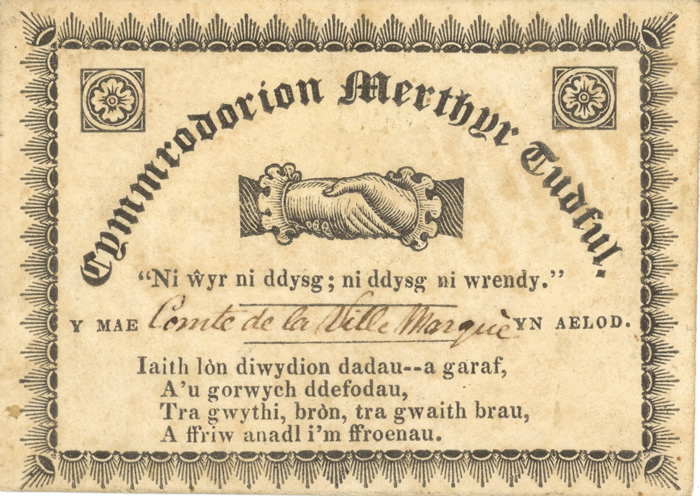 Cymmrodorion Merthyr Tudful.
"Ni ŵyr ni ddysg; ni ddysg ni wrendy."
Y MAE Comte de la Ville Marquè YN AELOD.
Iaith lòn diwydion dadau--a garaf,
A'u gorwych ddefodau,
Tra gwythi, bròn, tra gwaith brau,
A ffriw anadl i'm ffroenau.